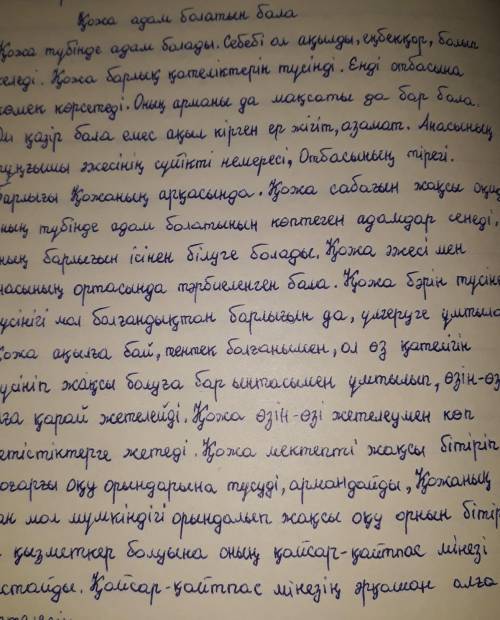 Қожа адам болатын бала
Қожа түбінде адам болады. Себебі ол ақылды, еңбекқор, болып
келеді. Қожа барлық қателіктерін түсінді. Енді отбасына
көмек көрсетеді. Оның арманы да мақсаты да бар бала.
Ол қазір бала емес ақыл кірген ер жігіт, азамат. Анасының
тұңғышы әжесінің сүйікті немересі, Отбасының тірегі.
Барлығы Қожаның арқасында. Қожа сабағын жақсы оқид
оның түбінде адам болатынын көптеген адамдар сенеді,
оның барлығын ісінен білуге болады. Қожа әжесі мен
анасының ортасында тәрбиеленген бала. Қожа бәрін түсін
түсінігі мол болғандықтан барлығын да, үлгеруге ұмтыла
Қожа ақылға бай, тентек болғанымен, ол өз қатейгін
түсініп жақсы болуға бар ынтасымен ұмтылып, өзін-өз
алға қарай жетелейді. Қожа өзін-өзі жетелеумен көп
жетістіктерге жетеді. Қожа мектепті жақсы бітіріп
жоғарғы оқу орындарына түсуді, армандайды, Қожаның
ан мол мүмкіндігі орындалып жақсы оқу орнын бітір
қызметкер болуына оның қайсар-қайтпас мінезі
астайды. Қайсар-қайтпас мінезің әрқашан алға